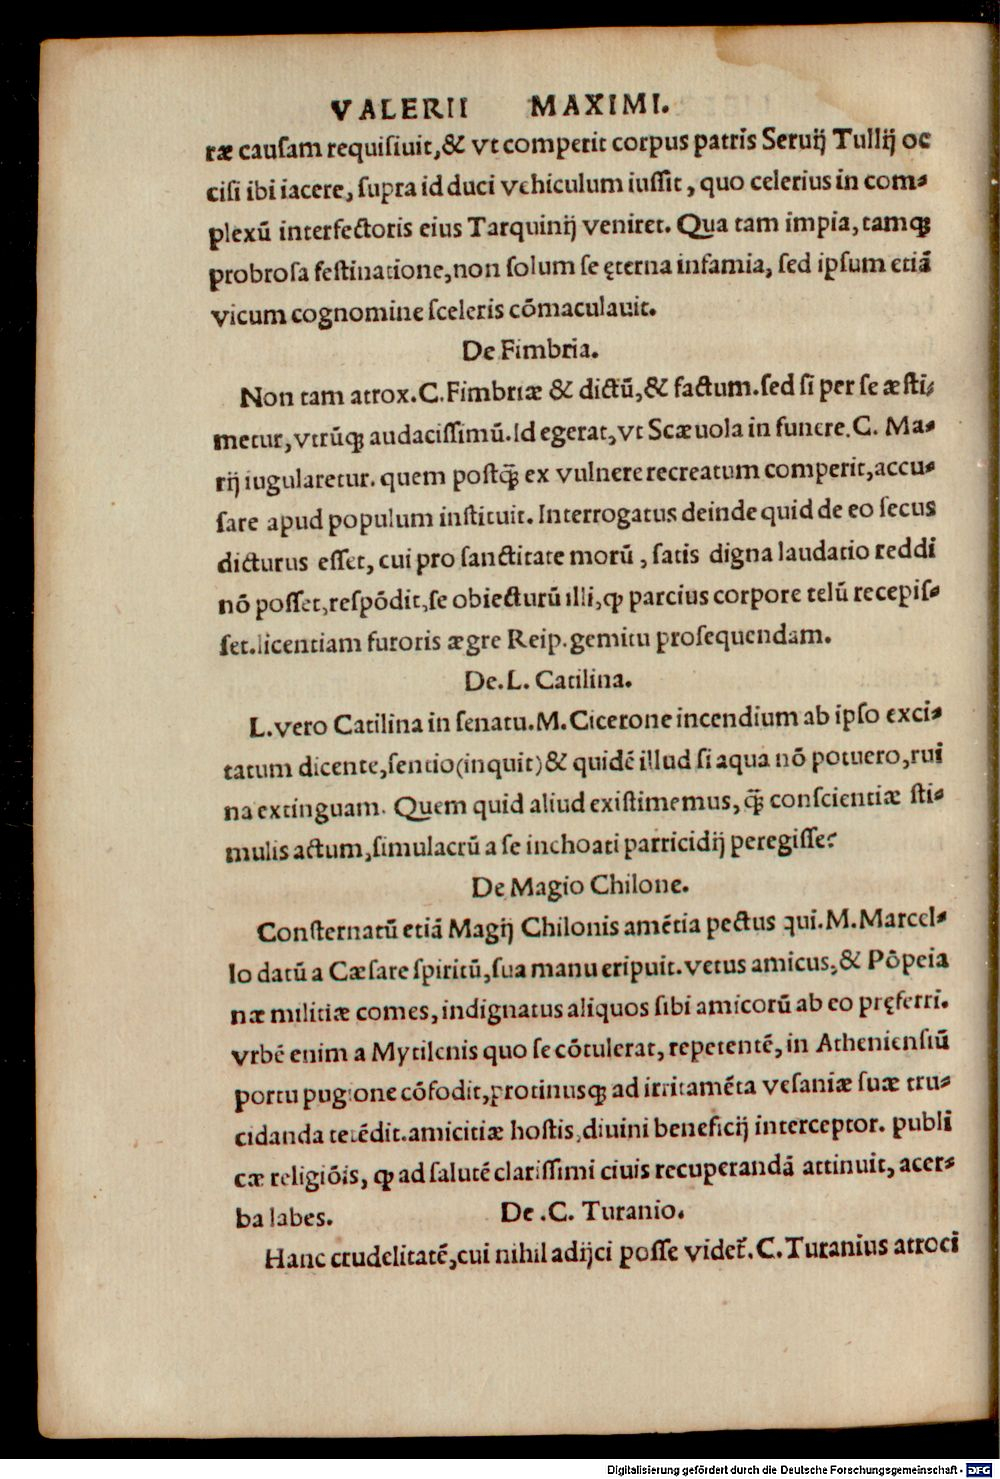 VALERII MAXIMI.
ræ cauſam requiſiuit,& vt comperit corpus patris Seruij Tullij oc
ciſi ibi iacere, ſupra id duci vehiculum iuſſit, quo celerius in com-
plexū interfectoris eius Tarquinij veniret. Qua tam impia, tamqꝫ
probroſa feſtinatione,non ſolum ſe ęterna infamia, ſed ipſum etiā
vicum cognomine ſceleris cōmaculauit.
De Fimbria.
Non tam atrox.C.Fimbriæ & dictū,& factum.ſed ſi per ſe æſti-
metur,vtrūqꝫ audaciſſimū.Id egerat,vt Scæuola in funere.C. Ma-
rij iugularetur. quem poſtq̄ꝫ ex vulnere recreatum comperit,accu-
ſare apud populum inſtituit. Interrogatus deinde quid de eo ſecus
dicturus eſſet, cui pro ſanctitate morū, ſatis digna laudatio reddi
nō poſſet,reſpōdit,ſe obiecturū illi,ꝙ parcius corpore telū recepiſ-
ſet.licentiam furoris ægre Reip.gemitu proſequendam.
De.L. Catilina.
L.vero Catilina in ſenatu.M.Cicerone incendium ab ipſo exci-
tatum dicente,ſentio(inquit)& quidē illud ſi aqua nō potuero,rui
na extinguam. Quem quid aliud exiſtimemus,q̄ꝫ conſcientiæ ſti-
mulis actum,ſimulacrū a ſe inchoati parricidij peregiſſe?
De Magio Chilone.
Conſternatū etiā Magij Chilonis amētia pectus qui.M.Marcel-
lo datū a Cæſare ſpiritū,ſua manu eripuit.vetus amicus,& Pōpeia
næ militiæ comes, indignatus aliquos ſibi amicorū ab eo pręferri.
vrbē enim a Mytilenis quo ſe cōtulerat, repetentē, in Athenienſiū
portu pugione cōfodit,protinusqꝫ ad irritamēta veſaniæ ſuæ tru-
cidanda tetēdit.amicitiæ hoſtis,diuini beneficij interceptor. publi
cæ religiōis, ꝙ ad ſalutē clariſſimi ciuis recuperandā attinuit, acer-
ba labes.
De .C. Turanio.
Hanc crudelitatē,cui nihil adijci poſſe videt᷑.C.Turanius atroci
Digitalisierung gefördert durch die Deutsche Forschungsgemeinschaft - DFG